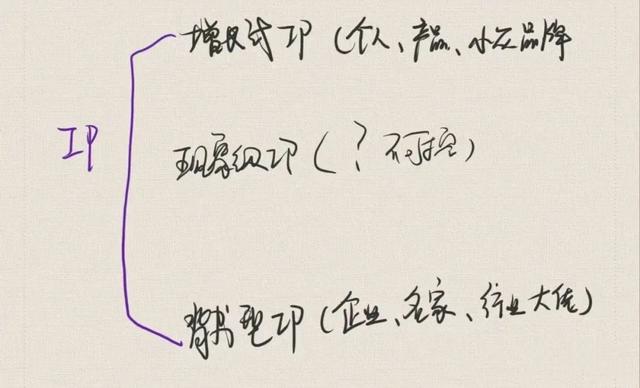 增长式IP（个人、产品、小众品牌
IP
现象级IP（？不可控）
背书型IP（企业、名家、行业大佬）